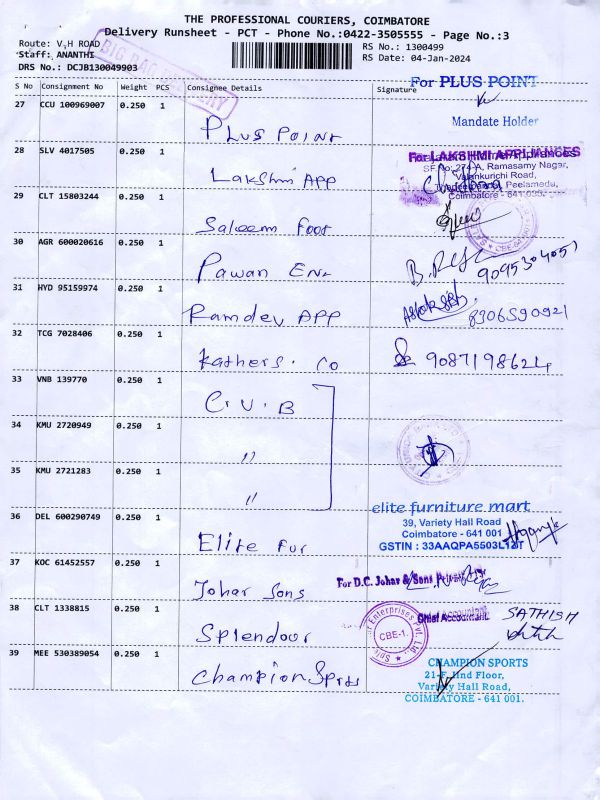 THE PROFESSIONAL COURIERS, COIMBATORE
Delivery Runsheet - PCT - Phone No.:0422-3505555 - Page No.:3
Route: V.H ROAD
RS No.: 1300499
Staff: ANANTHI
RS Date: 04-Jan-2024
DRS No.: DCJB130049903
S No Consignment No Weight PCS Consignee Details Signature
For PLUS POINT
27 CCU 100969007 0.250 1
Plus Point
Mandate Holder
28 SLV 4017505 0.250 1
For LAKSHMI APPLIANCES
SF No: 274-A, Ramasamy Nagar,
Lakshmi APP
Valankurichi Road,
Peelamedu,
29 CLT 15803244 0.250 1
Coimbatore - 641
Saleem Foot
30 AGR 600020616 0.250 1
Pawan Enr
9095304051
31 HYD 95159974 0.250 1
Ramdev APP
8906590921
32 TCG 7028406 0.250 1
Kathers. Co
9087198624
33 VNB 139770 0.250 1
C.U.B
34 KMU 2720949 0.250 1
"
35 KMU 2721283 0.250 1
"
elite furniture mart
36 DEL 600290749 0.250 1
39, Variety Hall Road
Coimbatore - 641 001
Elite Fur
GSTIN : 33AAQPA5503L1ZT
37 KOC 61452557 0.250 1
For D.C. Johar & Sons
Johar Sons
38 CLT 1338815 0.250 1
Enterprises Pvt. Ltd.
CBE-1.
Chief Accountant
SATHISH
Splendour
39 MEE 530389054 0.250 1
CHAMPION SPORTS
21-F, IInd Floor,
Champion Sprts
Variety Hall Road,
COIMBATORE - 641 001.